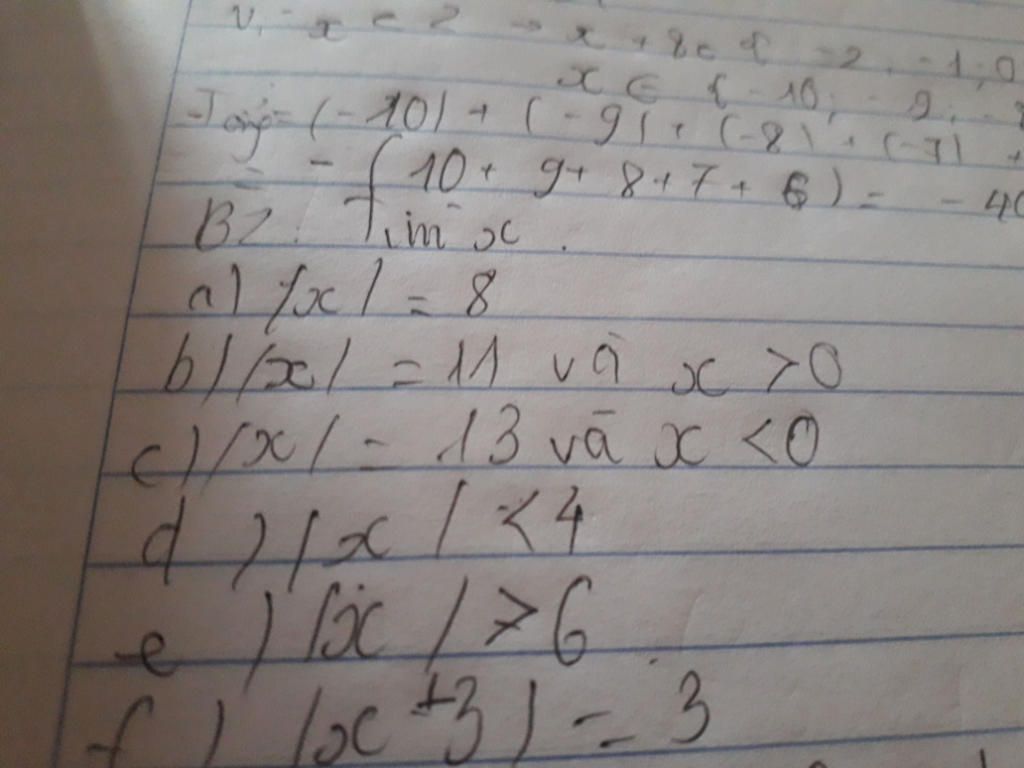 Vì x < 2 → x + 8 ∈ { -2, -1, 0
x ∈ { -10; -9;
Tổng = (-10) + (-9) + (-8) + (-7) +
= - (10 + 9 + 8 + 7 + 6) = - 40
B2: Tìm x.
a) |x| = 8
b) |x| = 11 và x > 0
c) |x| = 13 và x < 0
d) |x| < 4
e) |x| > 6
f) |x + 3| = 3